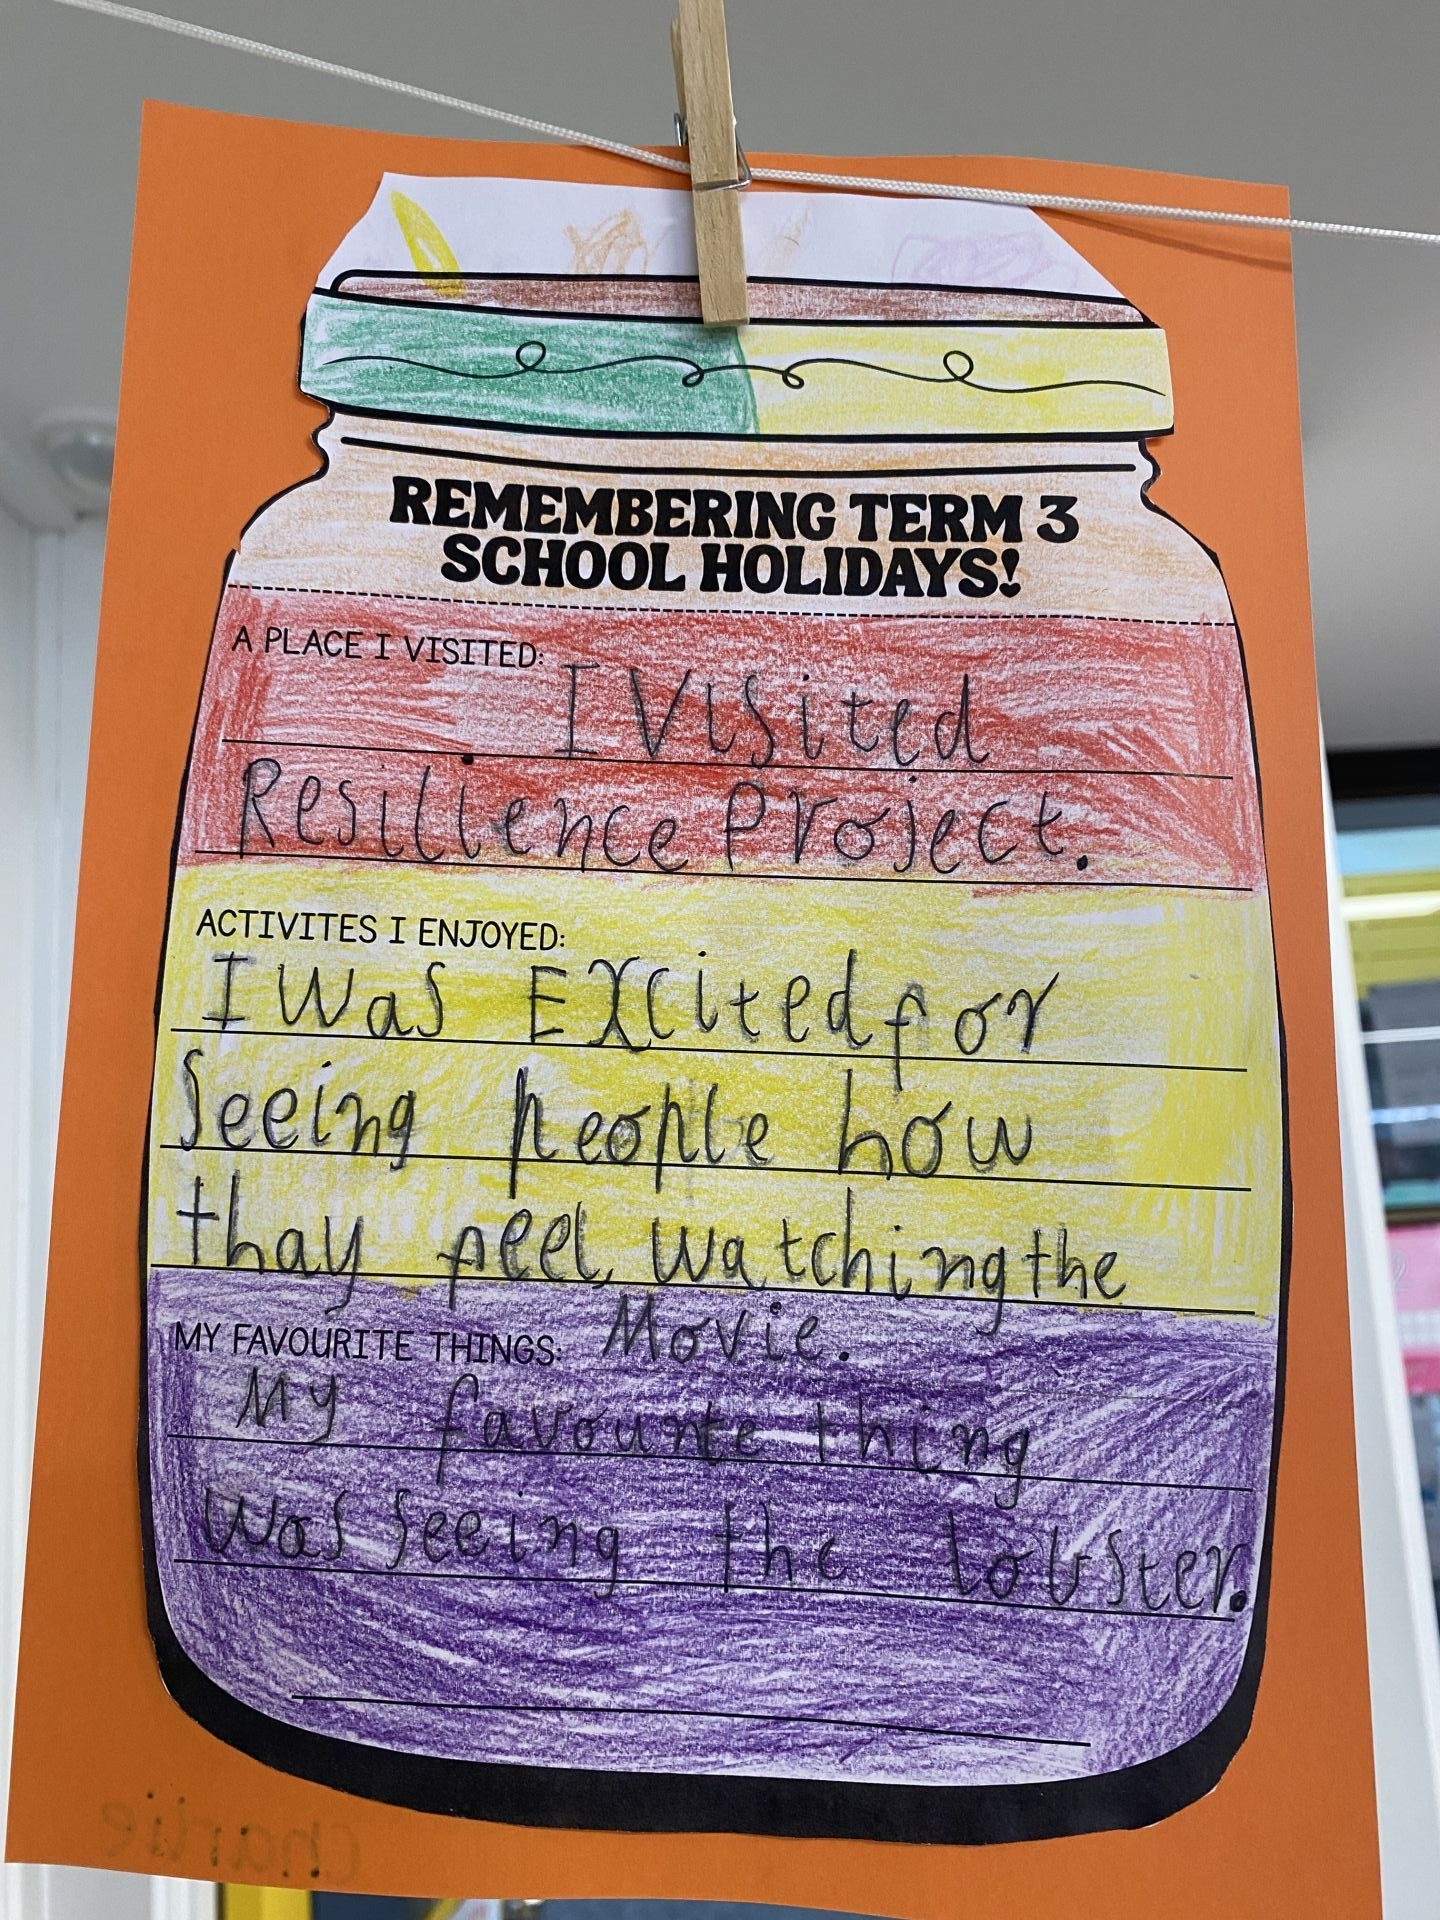 REMEMBERING TERM 3
SCHOOL HOLIDAYS!
A PLACE I VISITED: I Visited
Resilience Project.
ACTIVITES I ENJOYED:
I Was Excited for
Seeing people how
thay feel, watching the
MY FAVOURITE THINGS: Movie.
My favourite thing
was seeing the lobster.
Charlie